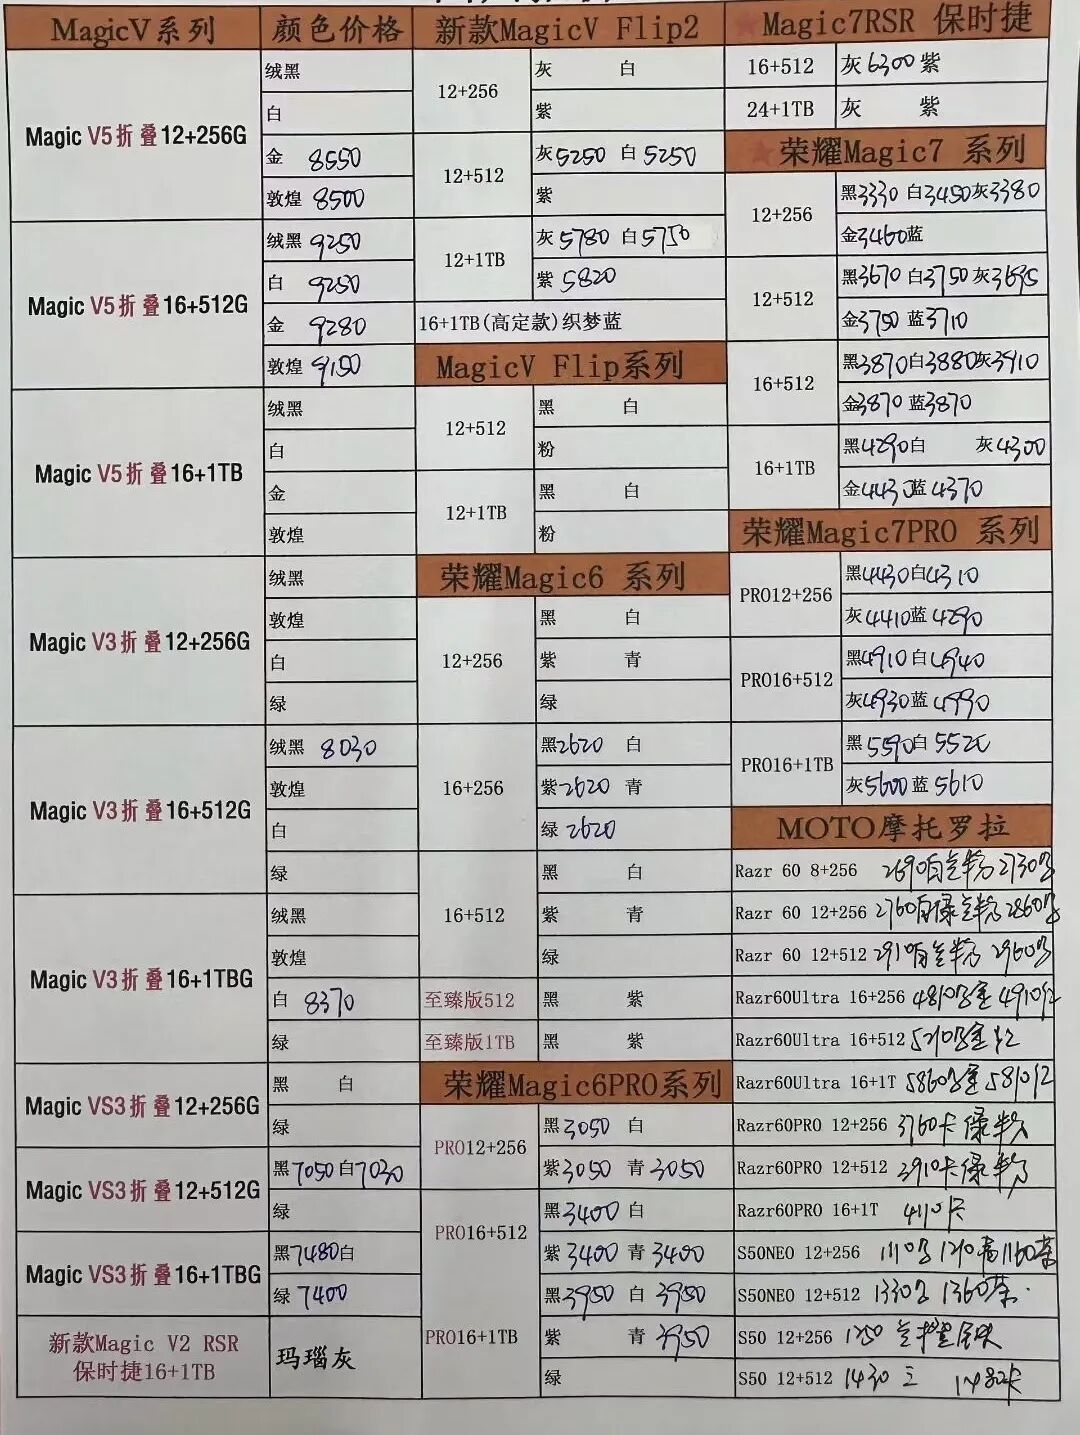 MagicV系列 颜色价格
Magic V5折叠12+256G
绒黑
白
金 8550
敦煌 8500
Magic V5折叠16+512G
绒黑 9250
白 9250
金 9280
敦煌 9150
Magic V5折叠16+1TB
绒黑
白
金
敦煌
Magic V3折叠12+256G
绒黑
敦煌
白
绿
Magic V3折叠16+512G
绒黑 8030
敦煌
白
绿
Magic V3折叠16+1TBG
绒黑
敦煌
白 8370
绿
Magic VS3折叠12+256G
黑 白
绿
Magic VS3折叠12+512G
黑7050白7030
绿
Magic VS3折叠16+1TBG
黑7480白
绿 7400
新款Magic V2 RSR
保时捷16+1TB
玛瑙灰
新款MagicV Flip2
12+256
灰 白
紫
12+512
灰5250 白5250
紫
12+1TB
灰5780 白5750
紫 5820
16+1TB(高定款)织梦蓝
MagicV Flip系列
12+512
黑 白
粉
12+1TB
黑 白
粉
荣耀Magic6 系列
12+256
黑 白
紫 青
绿
16+256
黑2620 白
紫2620 青
绿2620
16+512
黑 白
紫 青
绿
至臻版512 黑 紫
至臻版1TB 黑 紫
荣耀Magic6PRO系列
PRO12+256
黑3050 白
紫3050 青3050
PRO16+512
黑3400 白
紫3400 青3400
PRO16+1TB
黑3950 白3950
紫 青3950
绿
★Magic7RSR 保时捷
16+512 灰6300紫
24+1TB 灰 紫
★荣耀Magic7 系列
12+256
黑3330 白3450灰3380
金3460蓝
12+512
黑3670白3750灰3695
金3750 蓝3710
16+512
黑3870白3880灰3910
金3870 蓝3870
16+1TB
黑4290白 灰4300
金4430蓝4370
荣耀Magic7PRO 系列
PRO12+256
黑4430白4310
灰4410蓝4290
PRO16+512
黑4910白4940
灰4930蓝4990
PRO16+1TB
黑5590白5520
灰5600蓝5610
MOTO摩托罗拉
Razr 60 8+256 2690 2730
Razr 60 12+256 2760 2860
Razr 60 12+512 2910 2960
Razr60Ultra 16+256 4810 4910红
Razr60Ultra 16+512 5210 红
Razr60Ultra 16+1T 5860 5810红
Razr60PRO 12+256 3760卡 绿 粉
Razr60PRO 12+512 3910卡绿粉
Razr60PRO 16+1T 4110卡
S50NEO 12+256 1110 1210青1160茶
S50NEO 12+512 1330 1360茶
S50 12+256
S50 12+512 1430 1480卡